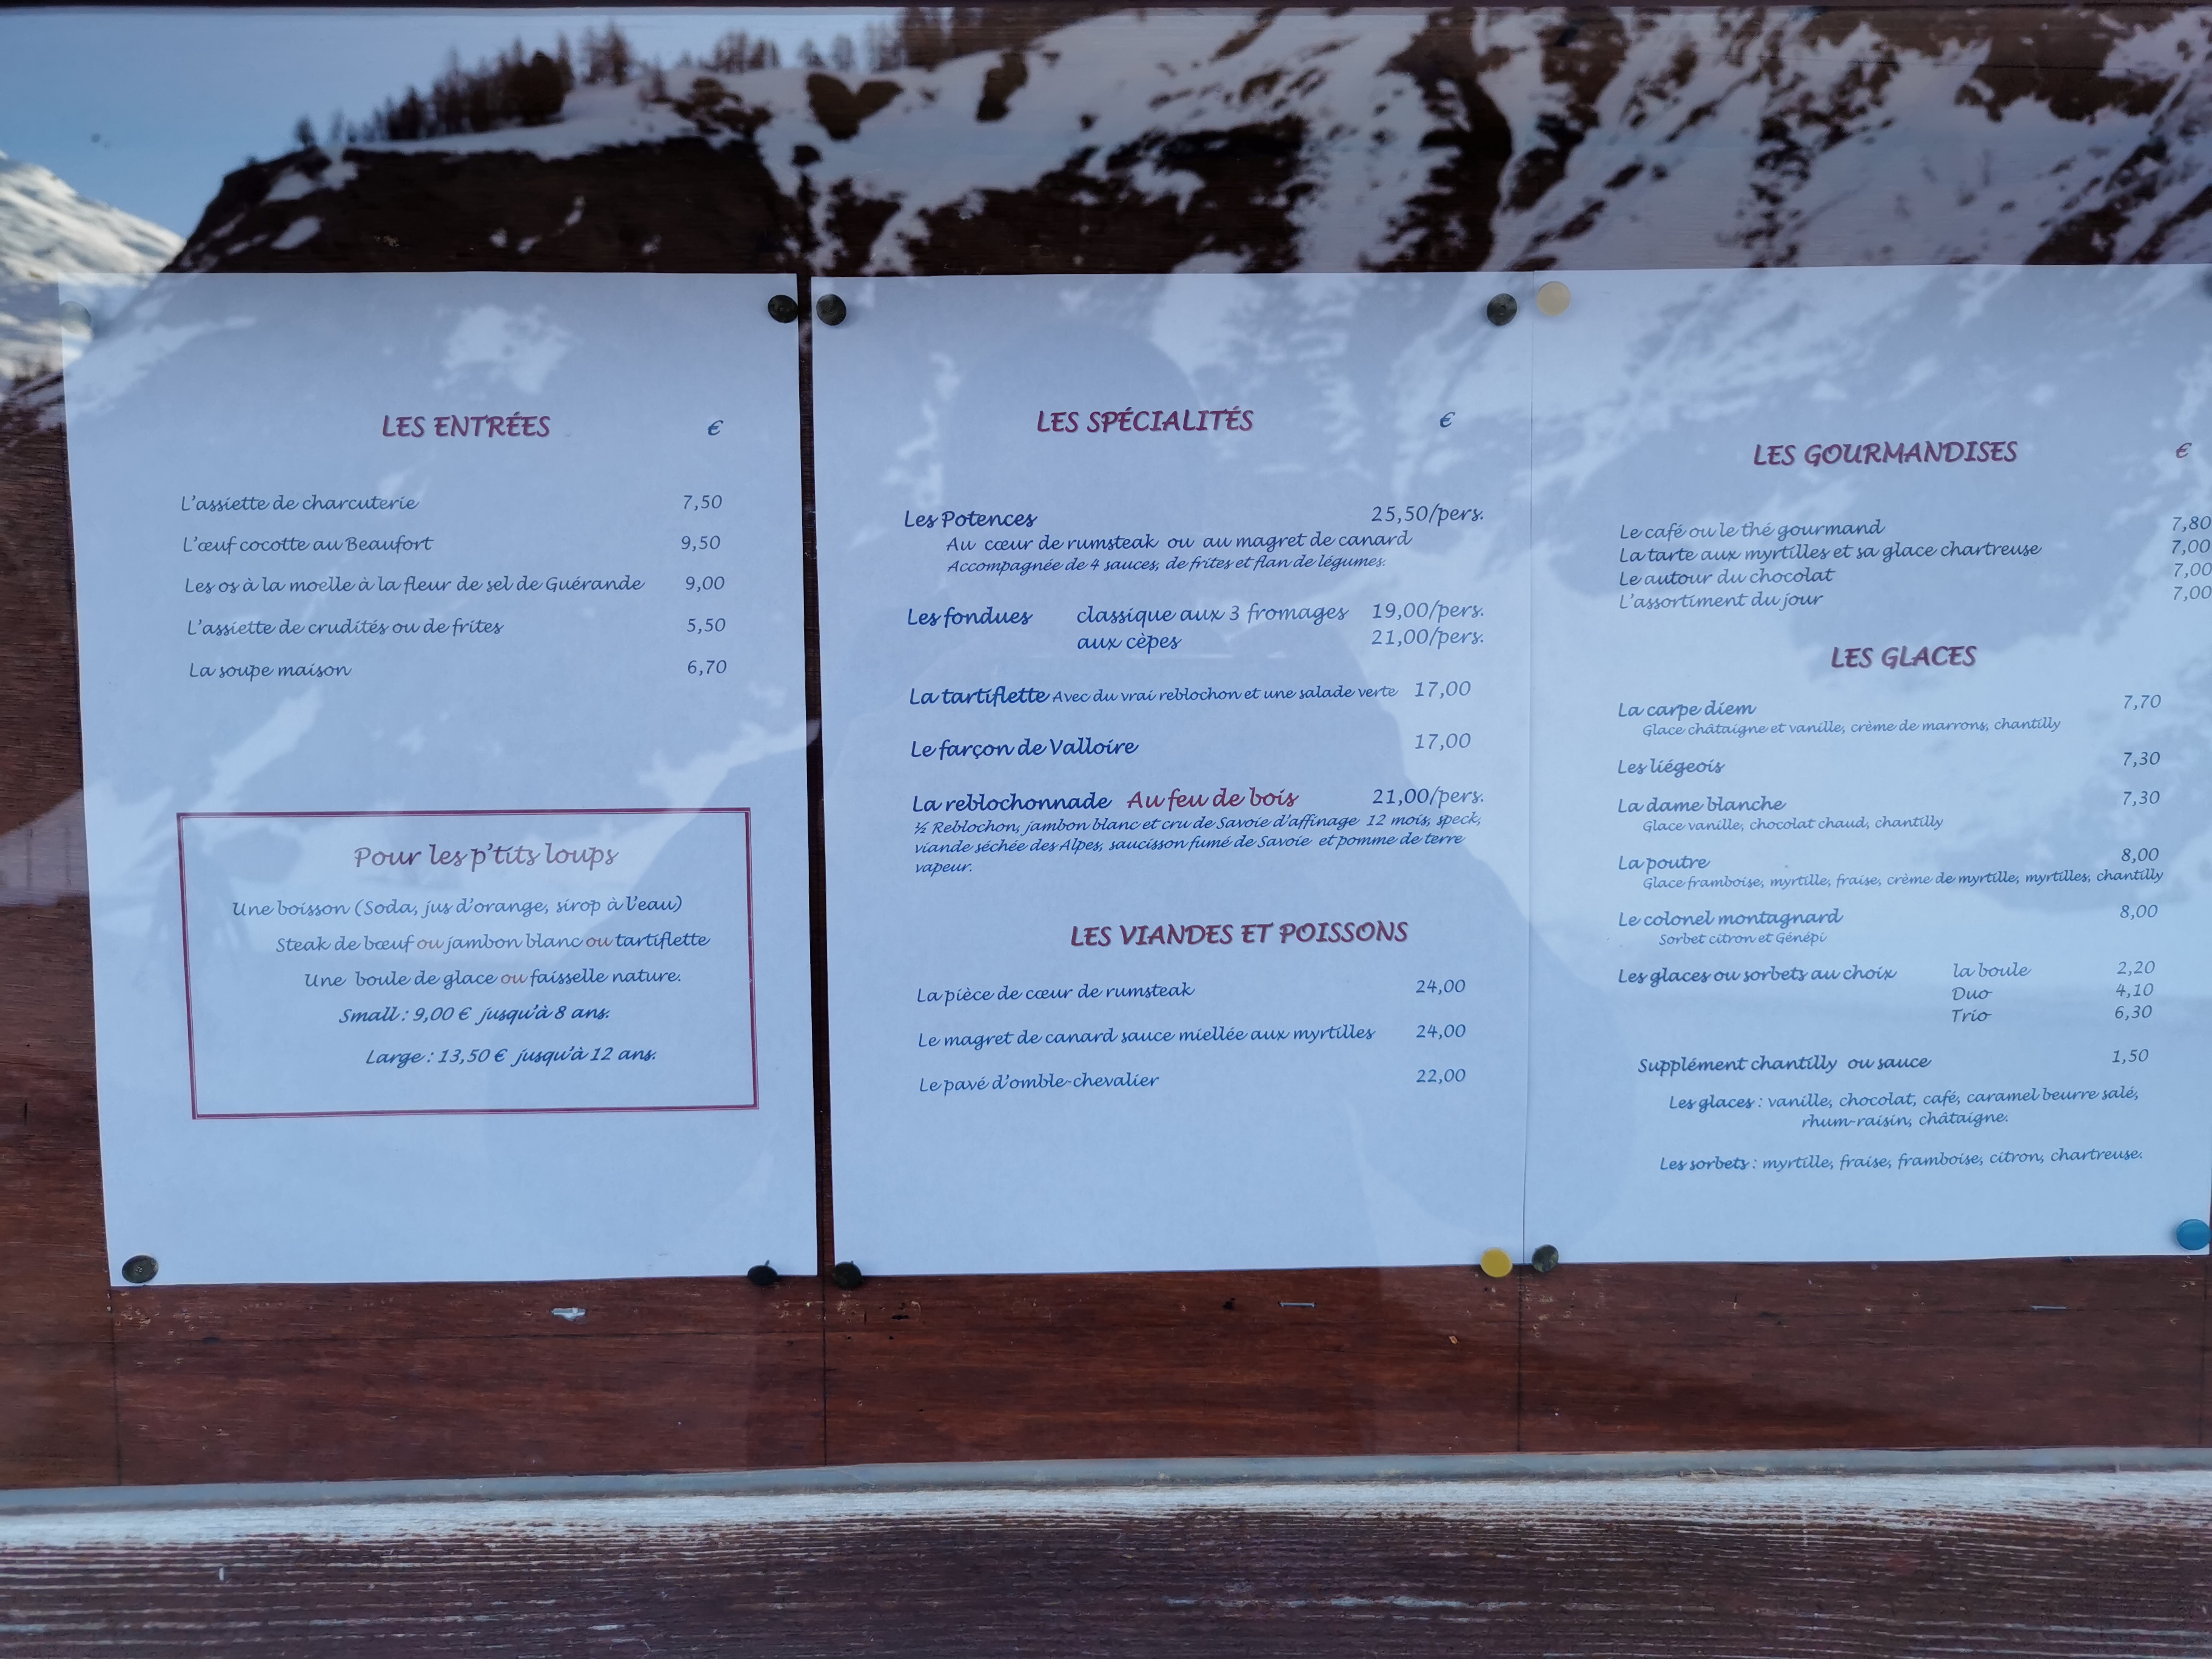 LES ENTRÉES €
L'assiette de charcuterie 7,50
L'œuf cocotte au Beaufort 9,50
Les os à la moelle à la fleur de sel de Guérande 9,00
L'assiette de crudités ou de frites 5,50
La soupe maison 6,70
Pour les p'tits loups
Une boisson (Soda, jus d'orange, sirop à l'eau)
Steak de bœuf ou jambon blanc ou tartiflette
Une boule de glace ou faisselle nature.
Small : 9,00 € jusqu'à 8 ans.
Large : 13,50 € jusqu'à 12 ans.
LES SPÉCIALITÉS €
Les Potences 25,50/pers.
Au cœur de rumsteak ou au magret de canard
Accompagnée de 4 sauces, de frites et flan de légumes.
Les fondues classique aux 3 fromages 19,00/pers.
aux cèpes 21,00/pers.
La tartiflette Avec du vrai reblochon et une salade verte 17,00
Le farçon de Valloire 17,00
La reblochonnade Au feu de bois 21,00/pers.
½ Reblochon, jambon blanc et cru de Savoie d'affinage 12 mois, speck,
viande séchée des Alpes, saucisson fumé de Savoie et pomme de terre
vapeur.
LES VIANDES ET POISSONS
La pièce de cœur de rumsteak 24,00
Le magret de canard sauce miellée aux myrtilles 24,00
Le pavé d'omble-chevalier 22,00
LES GOURMANDISES €
Le café ou le thé gourmand 7,80
La tarte aux myrtilles et sa glace chartreuse 7,00
Le autour du chocolat 7,00
L'assortiment du jour 7,00
LES GLACES
La carpe diem 7,70
Glace châtaigne et vanille, crème de marrons, chantilly
Les liégeois 7,30
La dame blanche 7,30
Glace vanille, chocolat chaud, chantilly
La poutre 8,00
Glace framboise, myrtille, fraise, crème de myrtille, myrtilles, chantilly
Le colonel montagnard 8,00
Sorbet citron et Génépi
Les glaces ou sorbets au choix la boule 2,20
Duo 4,10
Trio 6,30
Supplément chantilly ou sauce 1,50
Les glaces : vanille, chocolat, café, caramel beurre salé,
rhum-raisin, châtaigne.
Les sorbets : myrtille, fraise, framboise, citron, chartreuse.